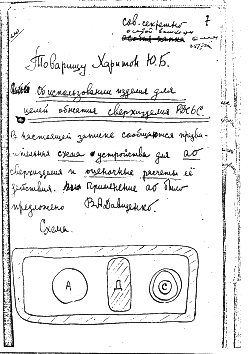 7
сов. секретно
особой важности
Товарищу Харитон Ю.Б.
Об использовании изделия для
целей обжатия сверхизделия РДС-6С.
В настоящей записке сообщаются предва-
рительная схема устройства для АО
сверхизделия и оценочные расчеты её
действия. Применение АО было
предложено В.А. Давиденко.
Схема.
А
Д
С